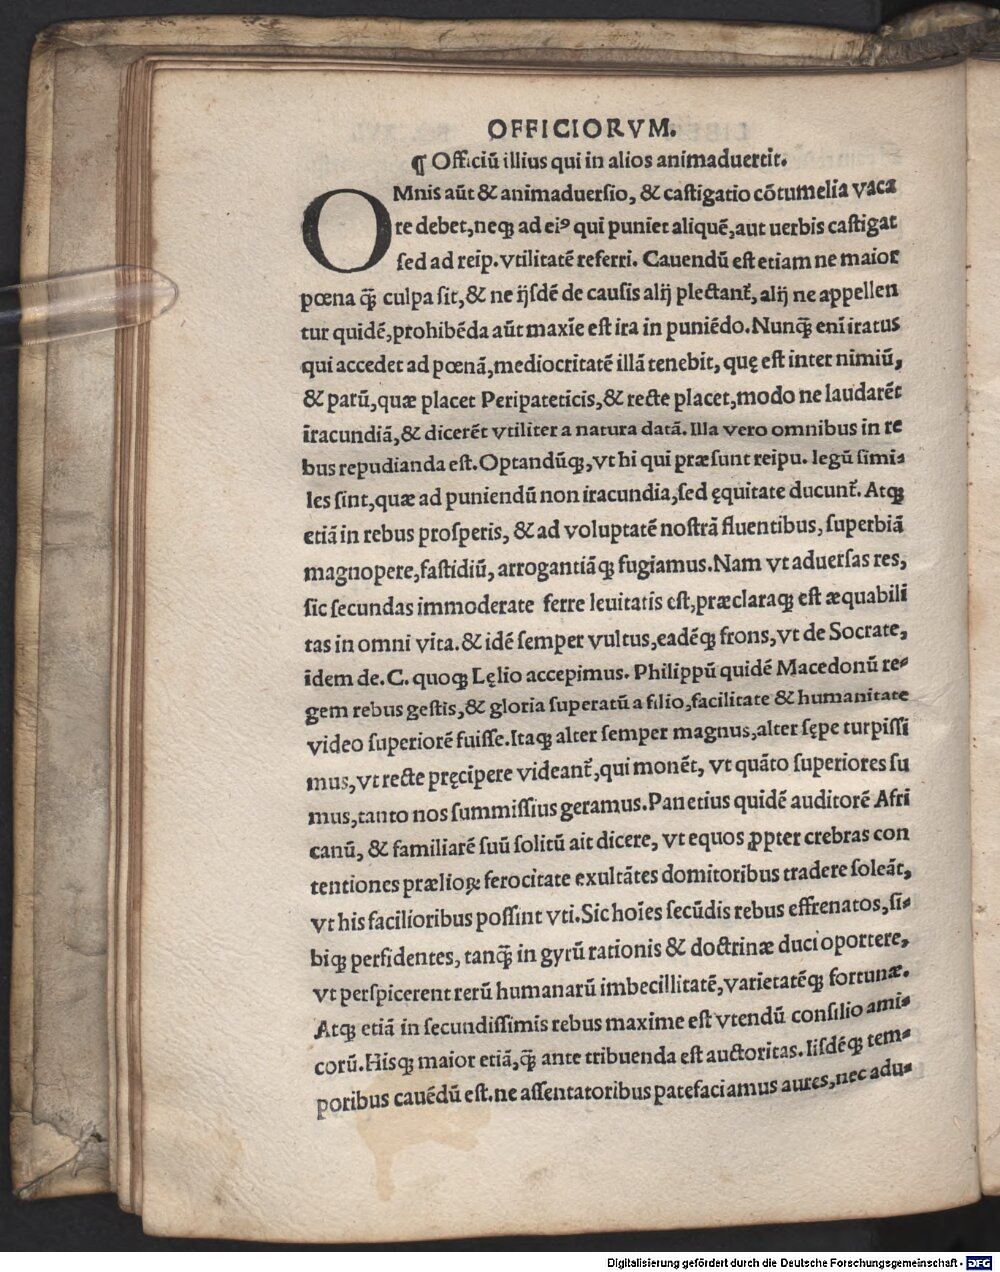 OFFICIORVM.
¶ Officiū illius qui in alios animaduertit.
OMnis aūt & animaduersio, & castigatio cōtumelia vaca
re debet,neqꝫ ad eiꝰ qui puniet aliquē,aut uerbis castigat
sed ad reip.vtilitatē referri. Cauendū est etiam ne maior
pœna q̄ꝫ culpa sit,& ne ijsdē de causis alij plectanť,alij ne appellen
tur quidē,prohibēda aūt maxīe est ira in puniēdo.Nunq̄ꝫ enī iratus
qui accedet ad pœnā,mediocritatē illā tenebit, quę est inter nimiū,
& parū,quæ placet Peripateticis,& recte placet,modo ne laudarēt
iracundiā,& dicerēt vtiliter a natura datā. Illa vero omnibus in re
bus repudianda est.Optandūqꝫ,vt hi qui præsunt reipu. legū simi-
les sint,quæ ad puniendū non iracundia,sed ęquitate ducunť. Atqꝫ
etiā in rebus prosperis, & ad voluptatē nostrā fluentibus, superbiā
magnopere,fastidiū, arrogantiāqꝫ fugiamus.Nam vt aduersas res,
sic secundas immoderate ferre leuitatis est,præclaraqꝫ est æquabili
tas in omni vita.& idē semper vultus,eadēqꝫ frons,vt de Socrate,
idem de.C. quoqꝫ Lęlio accepimus. Philippū quidē Macedonū re-
gem rebus gestis,& gloria superatū a filio,facilitate & humanitate
video superiorē fuisse.Itaqꝫ alter semper magnus,alter sępe turpissi
mus,vt recte pręcipere videanť,qui monēt, vt quāto superiores su
mus,tanto nos summissius geramus.Panetius quidē auditorē Afri
canū, & familiarē suū solitū ait dicere, vt equos ꝓpter crebras con
tentiones prælioꝝ ferocitate exultātes domitoribus tradere soleāt,
vt his facilioribus possint vti.Sic hoīes secūdis rebus effrenatos,si-
biqꝫ perfidentes, tanq̄ꝫ in gyrū rationis & doctrinæ duci oportere,
vt perspicerent rerū humanarū imbecillitatē,varietatēqꝫ fortunæ.
Atqꝫ etiā in secundissimis rebus maxime est vtendū consilio ami-
corū.Hisqꝫ maior etiā,q̄ꝫ ante tribuenda est auctoritas.Iisdēqꝫ tem-
poribus cauēdū est.ne assentatoribus patefaciamus aures,nec adu-
Digitalisierung gefördert durch die Deutsche Forschungsgemeinschaft - DFG